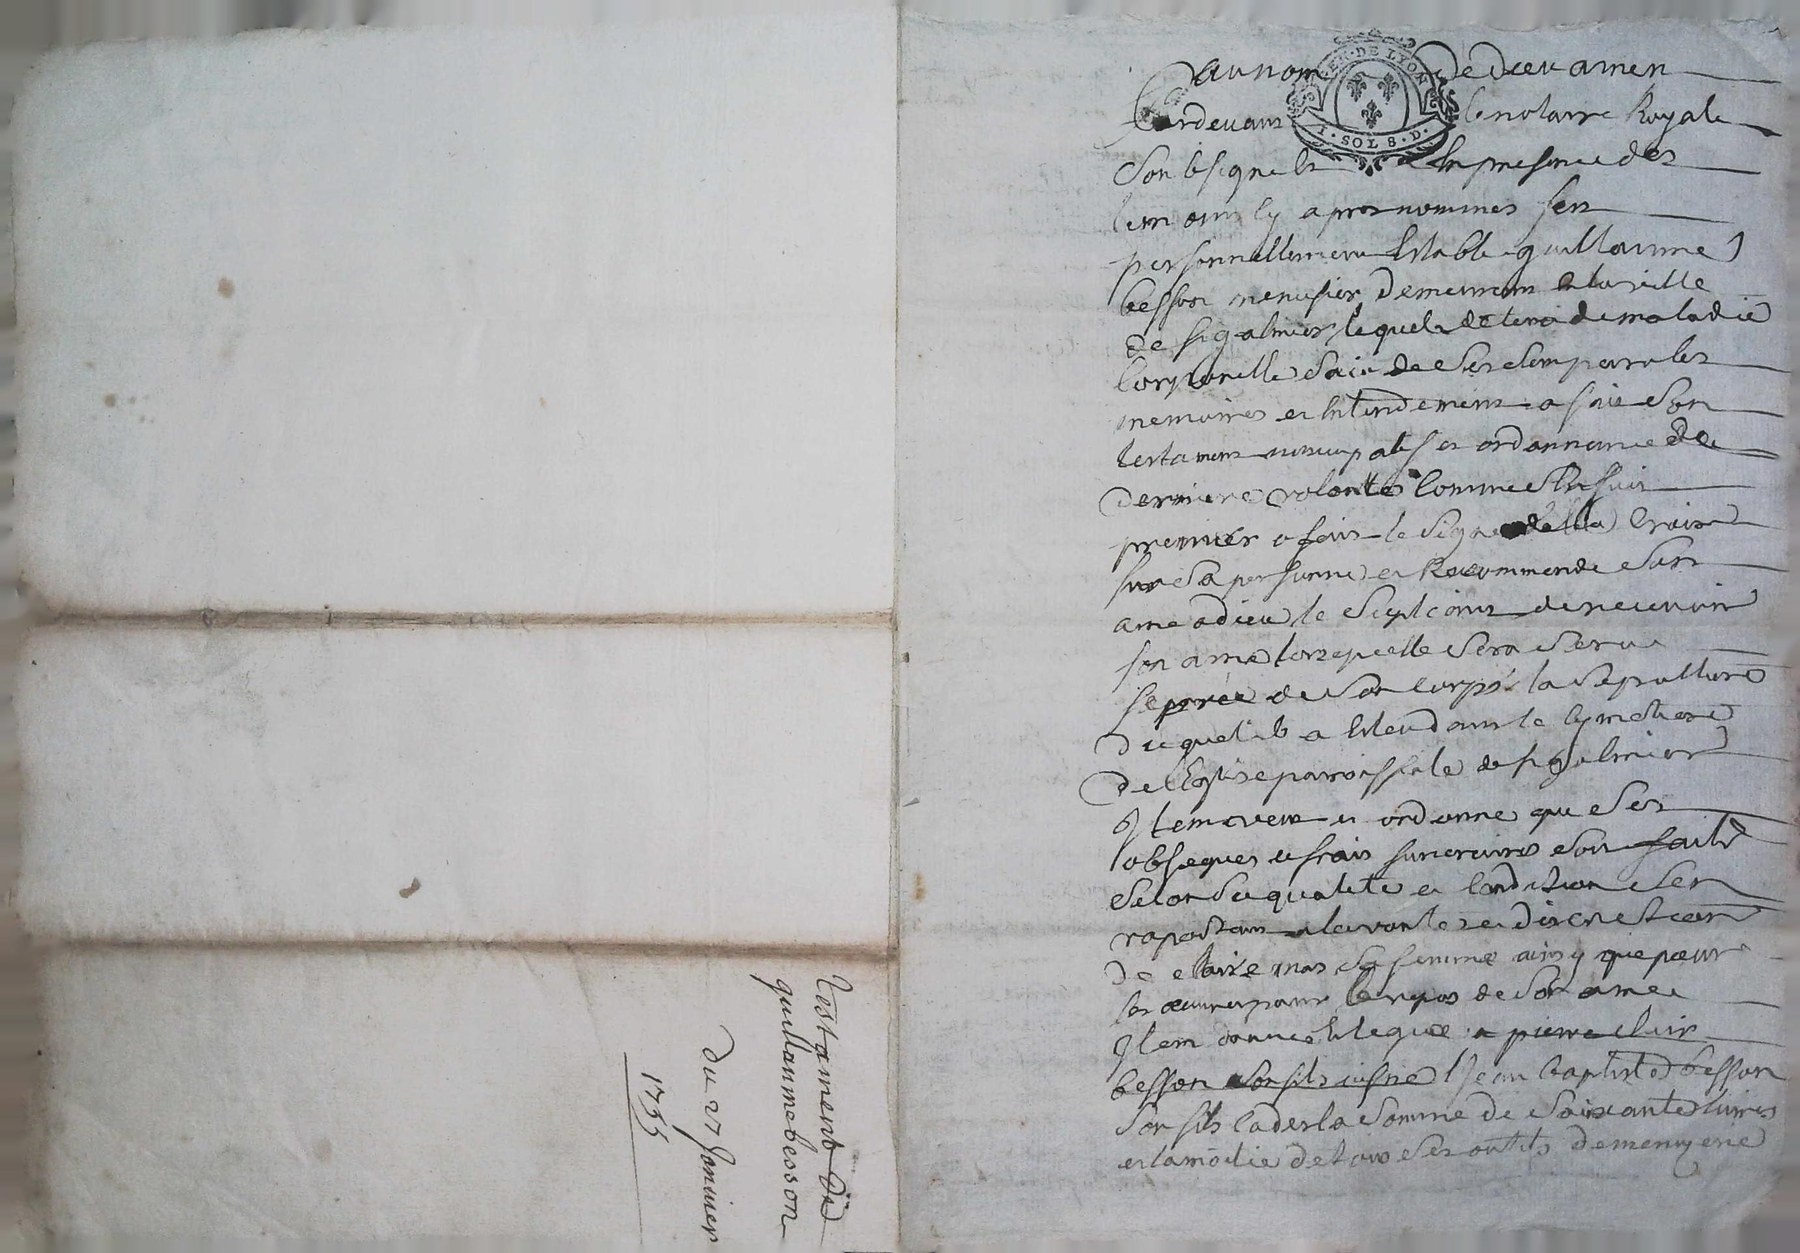 Testament de
guillaume besson
du 27 Janvier
1755
GEN · DE LYON
1 · SOL 8 · D ·
au nom de dieu amen
Pardevant le notaire Royale
Soubsigné et En presence des
temoins cy apres nommes fut
personnellement Estably guillaume
besson menusier demeurant en la ville
de st galmier lequel detenu de maladie
Corporelle Sain de Ses Sens parolles
memoires et Entendement a fait Son
testament nuncupatif et ordonnance de
derniere volonte Comme S'En suit
premier a fait le Signe de la Croix
sur Sa personne et Recommende Son
ame a dieu le Supliant de recevoir
son ame lorsquelle Sera Serve
sepree de Son Corps la Sepulture
duquel il a Eleu dans le Cymetiere
de l'Eglise paroissiale de st galmier
Item veut et ordonne que Ses
obseques et frais funeraires Soit faite
Selon Sa qualité et Condition S'en
raportant a la volonte et discretion
de Claire mas Sa femme ainsy que pour
les œuvres pour le repos de Son ame
Item donne et legue a pierre Clair
besson Son fils jean baptiste besson
Son fils Cader la Somme de Soixante livres
et la moitie de tous Ses outils de menuyerie